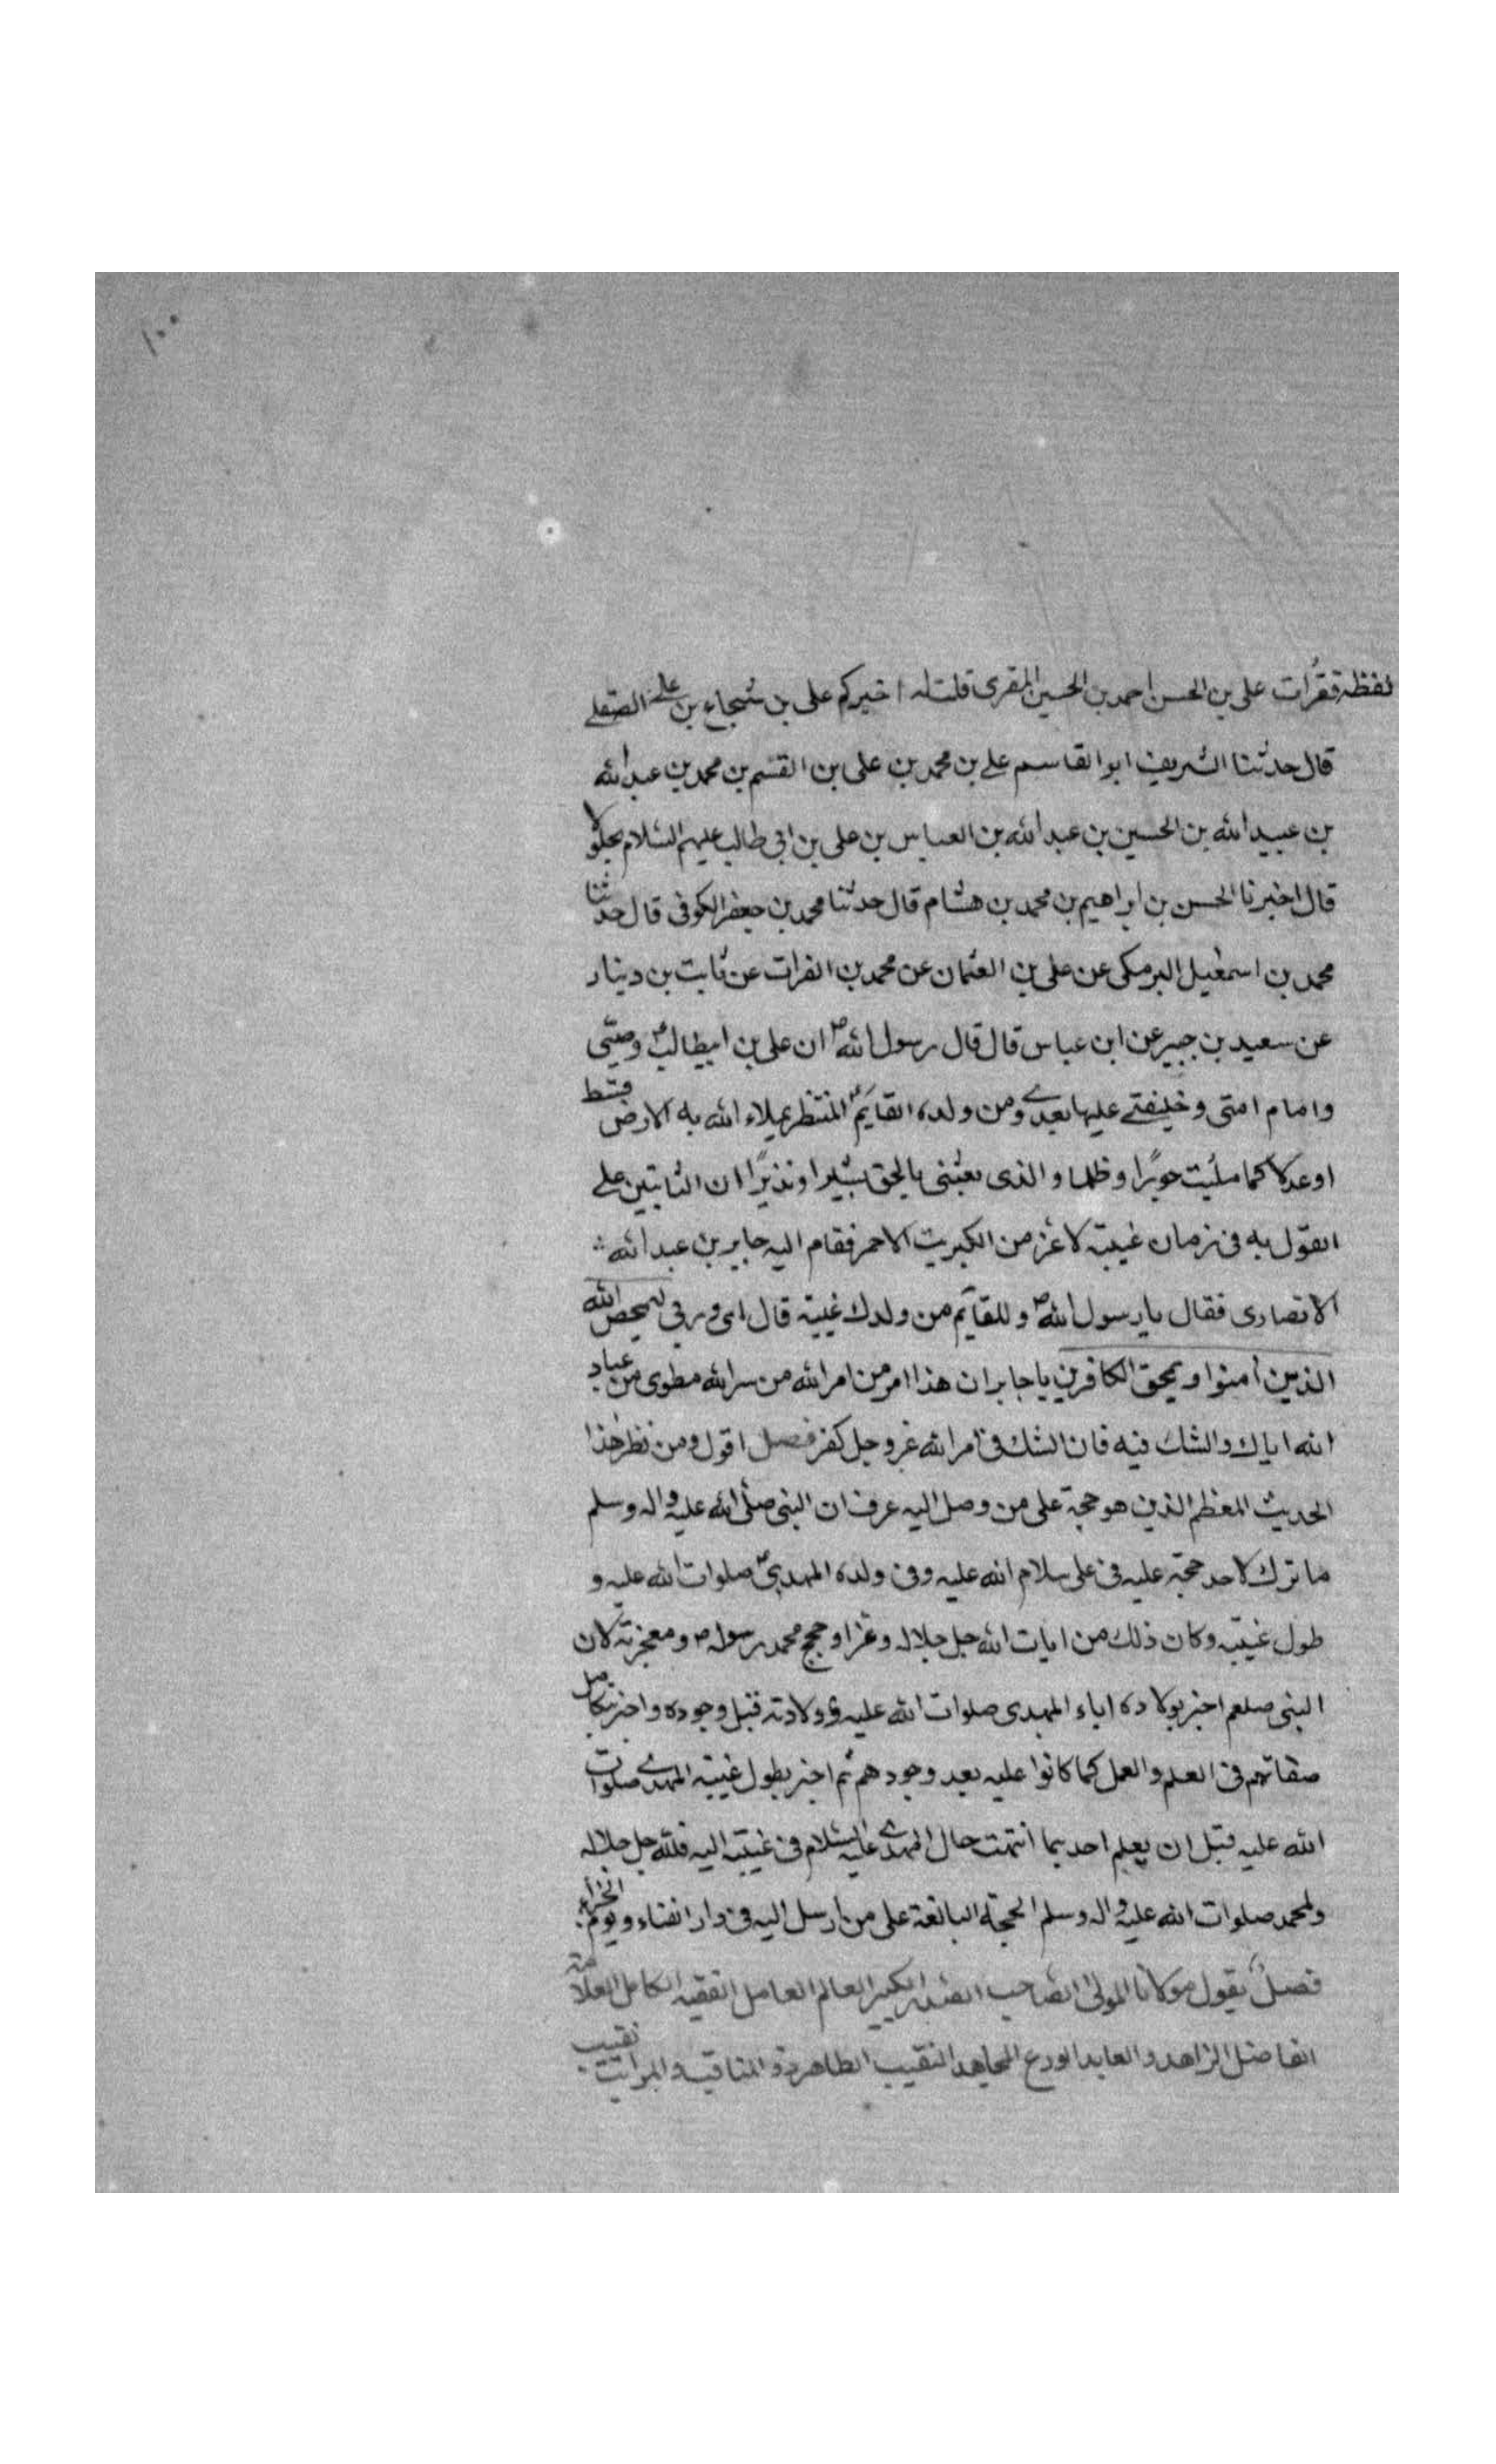 ١٠٠
لفظه فقرات علی بن الحسن احمد بن الحسین المقری قلت له اخبرکم علی بن شجاع بن علی الصقلے
قال حدثنا الشریف ابو القاسم علے بن محمد بن علی بن القسم بن محمد بن عبد الله
بن عبید الله بن الحسین بن عبد الله بن العباس بن علی بن ابی طالب علیهم السلام
قال اخبرنا الحسن بن ابراهیم بن محمد بن هشام قال حدثنا محمد بن جعفر الکوفی قال حدثنا
محمد بن اسمعیل البرمکی عن علی بن العثمان عن محمد بن الفرات عن ثابت بن دینار
عن سعید بن جبیر عن ابن عباس قال قال رسول الله ص ان علی بن ابیطالب ع وصیی
وامام امتی وخلیفتے علیها بعدے ومن ولده القایم ع المنتظر یملاء الله به الارض قسط
اوعدلا کما ملئت جورًا وظلما والذی بعثنی بالحق بشیرا ونذیرًا ان الثابتین علے
القول به فی زمان غیبته لاعز من الکبریت الاحمر فقام الیه جابر بن عبد الله
الانصاری فقال یا رسول الله ص وللقآیم من ولدك غیبة قال ای وربی لیمحص الله
الذین آمنوا ویمحق الکافرین یا جابر ان هذا امر من امر الله من سر الله مطوی من عباد
الله ایاك والشك فیه فان الشك فی امر الله عز وجل کفر فصل اقول ومن نظر هذا
الحدیث المعظم الذین هو حجة علی من وصل الیه عرف ان النبی صلی الله علیه واله وسلم
ما ترك لاحد حجة علیه فی علی سلام الله علیه وفی ولده المهدی ع صلوات الله علیه و
طول غیبته وکان ذلك من ایات الله جل جلاله وعز او حجج محمد رسوله ص ومعجزته لان
النبی صلعم اخبر بولادة اباء المهدی صلوات الله علیه وولادته قبل وجوده واخبر بکامل
صفاتهم فی العلم والعمل کما کانوا علیه بعد وجودهم ثم اخبر بطول غیبة المهدے صلوات
الله علیه قبل ان یعلم احد بما انتهت حال المهدے علیه السلام فی غیبته الیه فلله جل جلاله
ولمحمد صلوات الله علیه واله وسلم الحجة البالغة علی من ارسل الیه فی دار الفناء ویوم الجزاء
فصل یقول مولانا المولی الصاحب الصدر الکبیر العالم العامل الفقیه الکامل العلامة
الفاضل الزاهد والعابد الورع المجاهد النقیب الطاهر ذو المناقب والمراتب نقیب